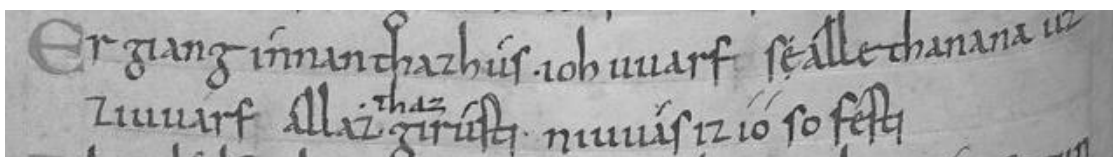 Er giang innan thaz hús · ioh uuarf sę álle thanana uz
ziuuuarf állaz thaz girústi · niuuás iz íó so fésti